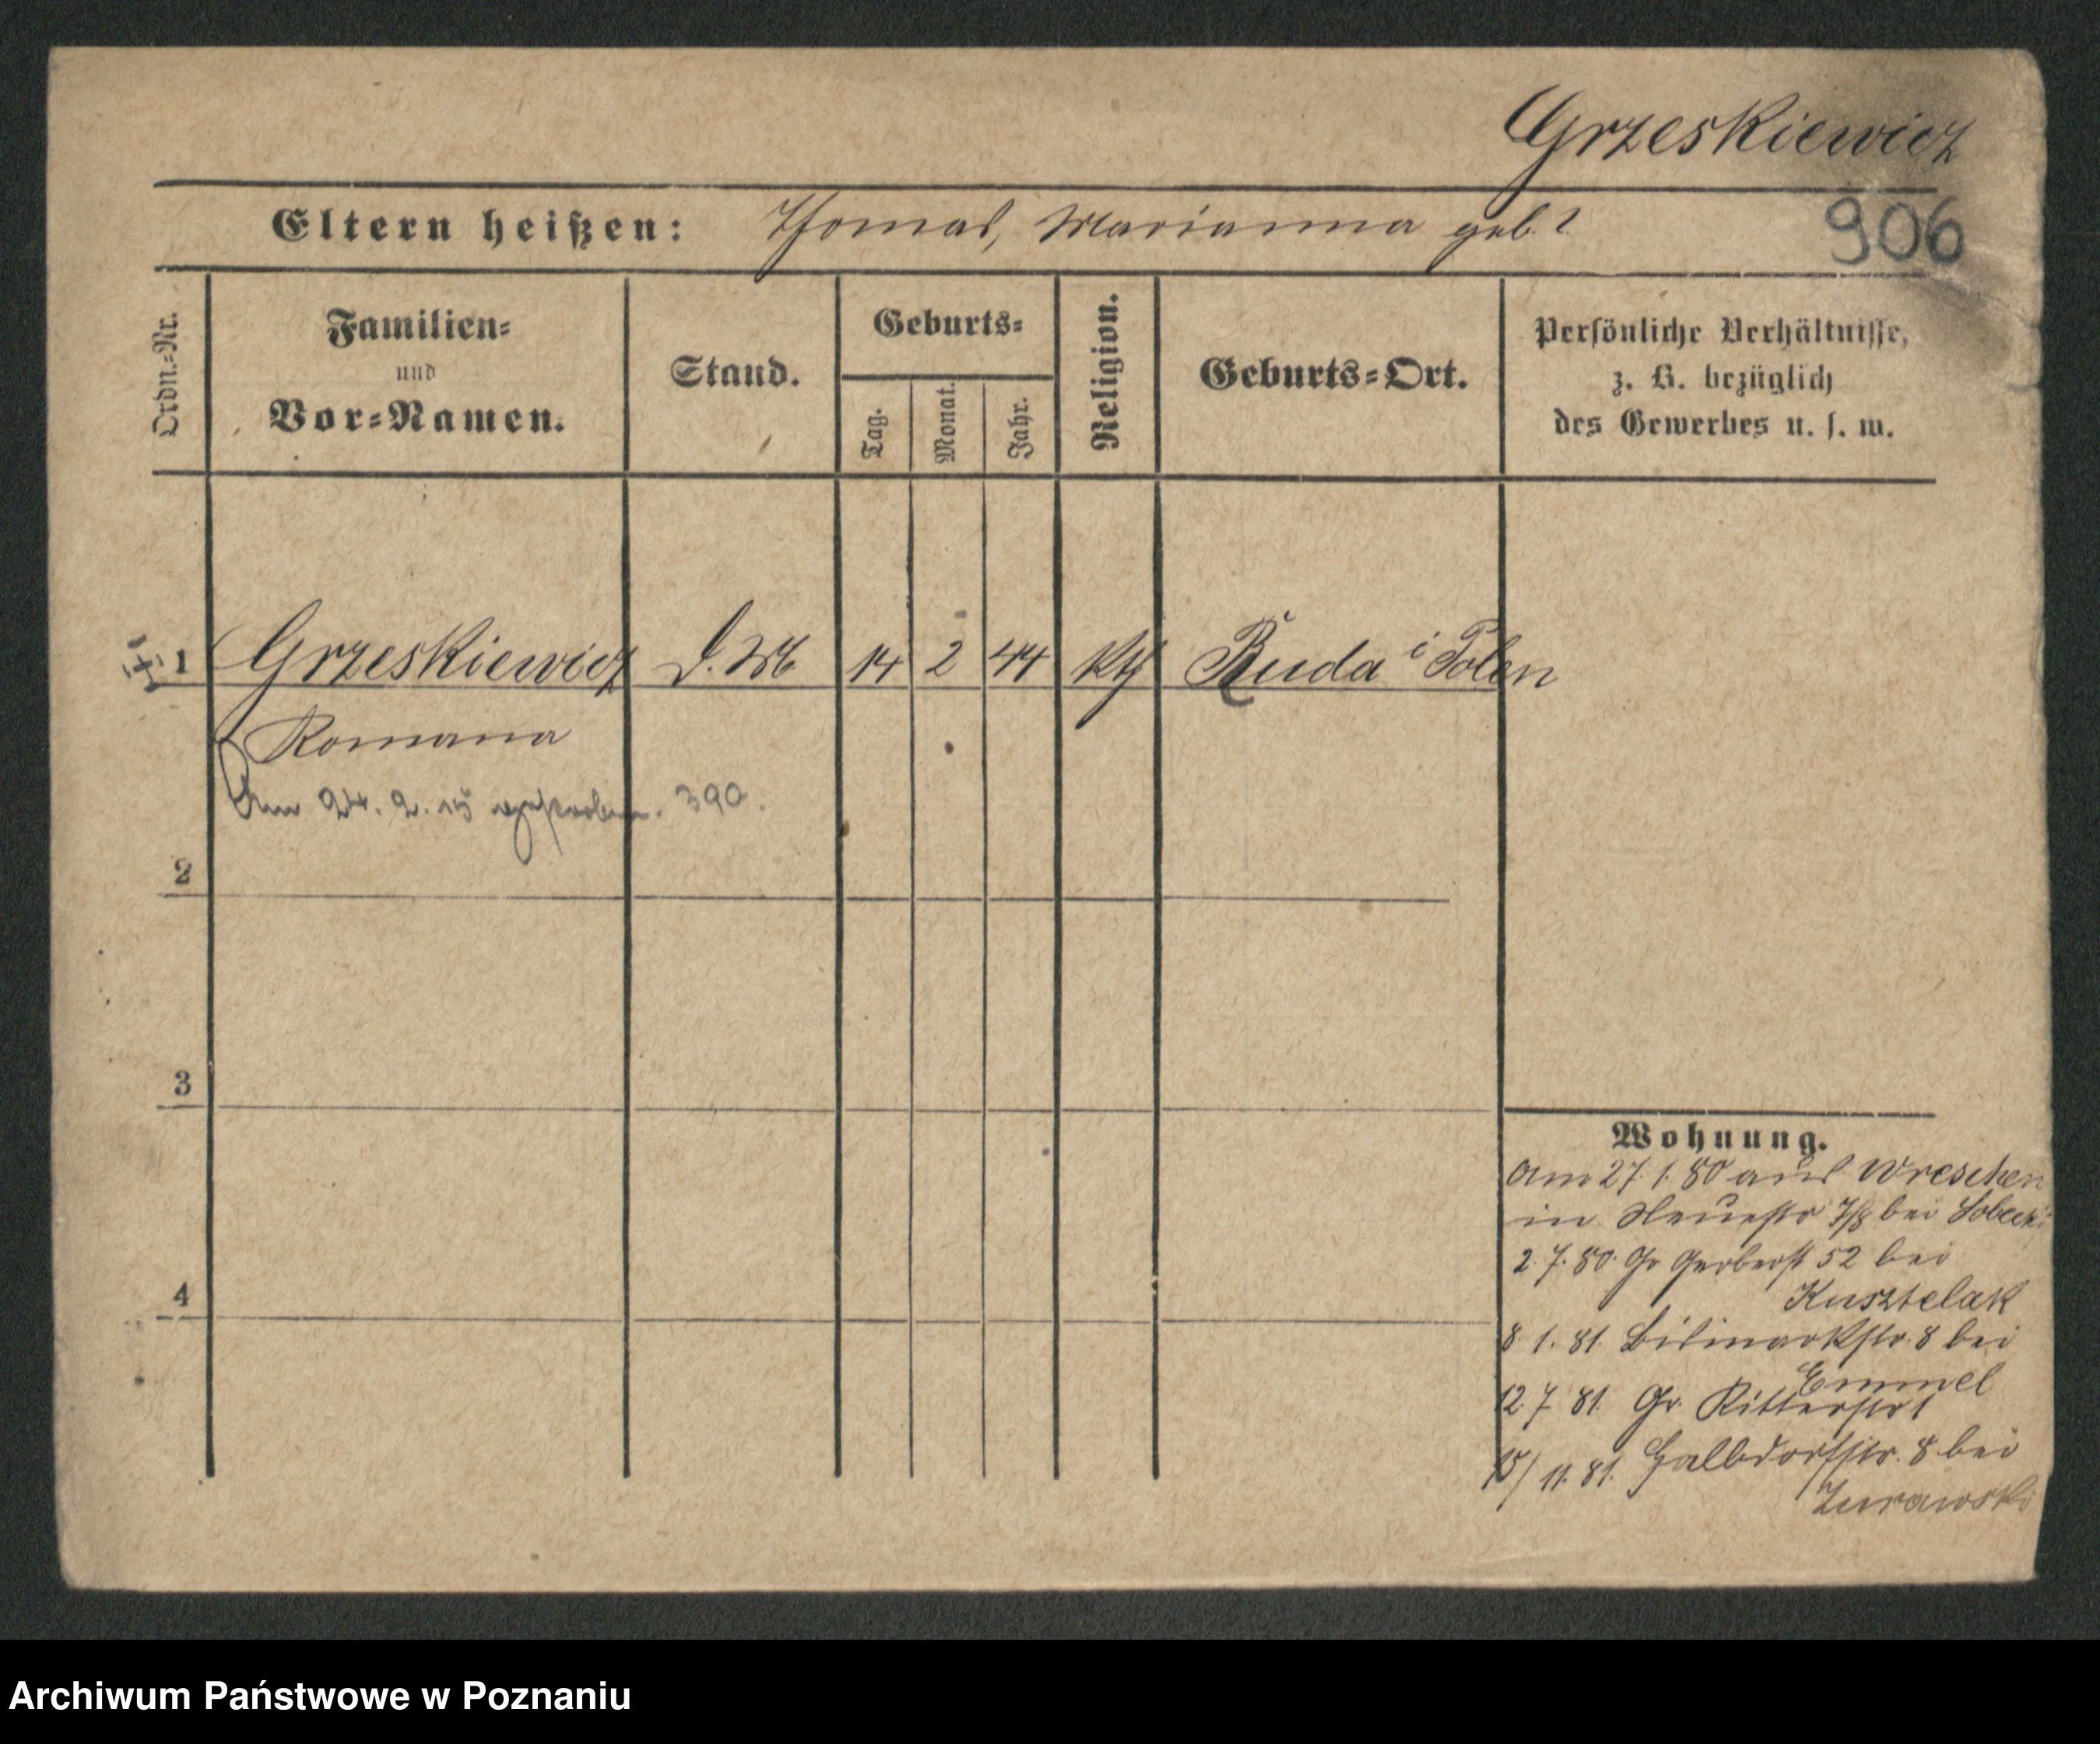 Grzeskiewicz
Eltern heißen: Thomas, Marianna geb ?
906
Ordn.=Nr.
Familien=
und
Vor=Namen.
Stand.
Geburts=
Tag.
Monat.
Jahr.
Religion.
Geburts=Ort.
Persönliche Verhältnisse,
z. B. bezüglich
des Gewerbes u. s. w.
1 Grzeskiewicz 14 2 44 Kth Ruda i Polen
Romana
Am 24. 2. 15 gestorben. 390.
2
3
4
Wohnung.
Am 27. 1. 80 aus Wreschen
in Neuestr 7/8 bei Sobecki
2. 7. 80. Gr Gerberst 52 bei
Kusztelak
8. 1. 81. Bismarkstr. 8 bei
Emmel
12. 7 81. Gr. Ritterstr 1
15/11. 81. Halbdorfstr. 8 bei
Zurawski
Archiwum Państwowe w Poznaniu